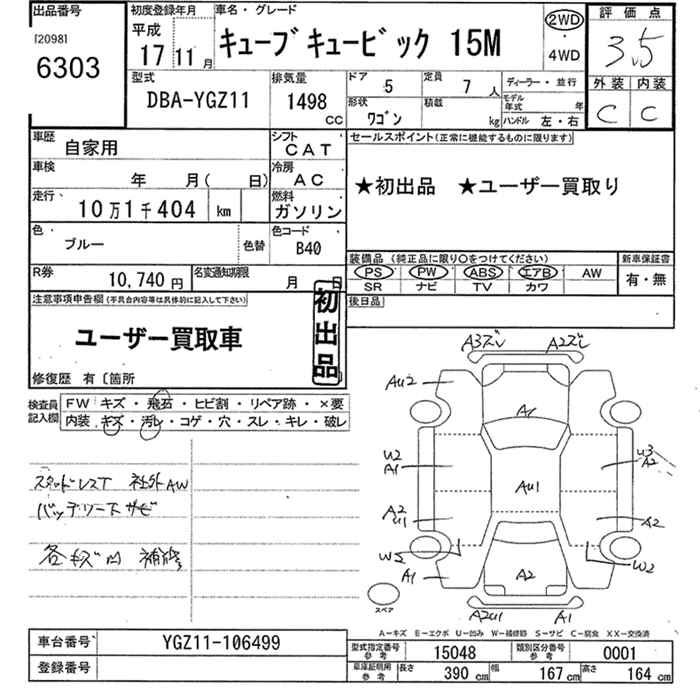 出品番号
[2098]
6303
初度登録年月
平成
17 11 月
車名・グレード
キューブキュービック 15M
2WD
・
4WD
評価点
3.5
外装 内装
C C
型式
DBA-YGZ11
排気量
1498
CC
ドア 5
定員 7 人
ディーラー・並行
形状 ワゴン
積載 kg
モデル年式 年
ハンドル 左・右
車歴 自家用
シフト CAT
車検 年 月( 日)
冷房 AC
走行 10万1千404 km
燃料 ガソリン
色 ブルー
色替
色コード B40
R券 10,740円
名変通知期限 月 日
セールスポイント(正常に機能するものに限ります)
★初出品 ★ユーザー買取り
装備品 (純正品に限り○をつけてください)
PS PW ABS エアB AW
SR ナビ TV カワ
新車保証書
有・無
後日品
注意事項申告欄(不具合内容等は具体的に記入して下さい)
ユーザー買取車
初出品
修復歴 有〔箇所
検査員記入欄
FW キズ・飛石・ヒビ割・リペア跡・×要
内装・キズ・汚レ・コゲ・穴・スレ・キレ・破レ
スタッドレスT 社外AW
バッテリー下サビ
各キズ凹 補修
A3ズレ A2ズレ
AU2
A1
U2
A1
U3
A2
AU1
A2
U1
A2
W2
W2
A1
A2
A2U1 A1
スペア
A-キズ E-エクボ U-凹み W-補修跡 S-サビ C-腐食 XX-交換済
車台番号 YGZ11-106499
登録番号
型式指定番号 参考 15048
類別区分番号 参考 0001
車庫証明用 参考
長さ 390 cm
幅 167 cm
高さ 164 cm